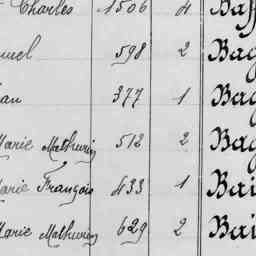 Charles 1506 4 Baff
uel 598 2 Bag
an 377 1 Bag
Marie Mathurin 512 2 Bag
Marie François 433 1 Bai
Marie Mathurin 629 2 Bai